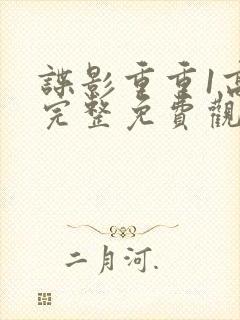 諜影重重1高
完整免費觀
二月河.